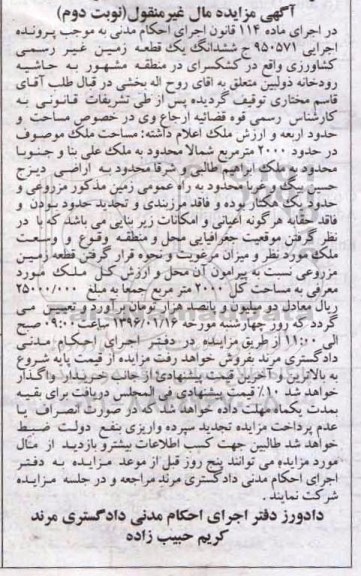 آگهی مزایده مال غیرمنقول(نوبت دوم)
در اجرای ماده ۱۱۴ قانون اجرای احکام مدنی به موجب پرونده
اجرایی ۹۵۰۵۷۱ ح ششدانگ یک قطعه زمین غیر رسمی
کشاورزی واقع در کشکسرای در منطقه مشهور به حاشیه
رودخانه ذولبین متعلق به اقای روح اله بخشی در قبال طلب آقای
قاسم مختاری توقیف گردیده پس از طی تشریفات قانونی به
کارشناس رسمی قوه قضائیه ارجاع وی در خصوص مساحت و
حدود اربعه و ارزش ملک اعلام داشته: مساحت ملک موصوف
در حدود ۲۰۰۰ مترمربع شمالا محدود به ملک علی بنا و جنوبا
محدود به ملک ابراهیم طالبی و شرقا محدود به اراضی دیزج
حسین بیگ و غربا محدود به راه عمومی زمین مذکور مزروعی و
حدود یک هکتار بوده و فاقد مرزبندی و تحدید حدود بودن و
فاقد حقابه هرگونه اعیانی و امکانات زیر بنایی می باشد که با در
نظر گرفتن موقعیت جغرافیایی محل و منطقه وقوع و وسعت
ملک مورد نظر و میزان مرغوبیت و نحوه قرار گرفتن قطعه زمین
مزروعی نسبت به پیرامون آن محل و ارزش کل ملک مورد
معرفی به مساحت کل ۲۰۰۰ متر مربع جمعا به مبلغ ۲۵۰۰۰/۰۰۰
ریال معادل دو میلیون و پانصد هزار تومان برآورد و تعیین می
گردد که روز چهارشنبه مورخه ۱۳۹۶/۰۱/۱۶ ساعت ۰۹:۰۰ صبح
الی ۱۱:۰۰ از طریق مزایده در دفتر اجرای احکام مدنی
دادگستری مرند بفروش خواهد رفت مزایده از قیمت پایه شروع
به بالاترین و آخرین قیمت پیشنهادی از جانب خریدار واگذار
خواهد شد ۱۰٪ قیمت پیشنهادی فی المجلس دریافت برای بقیه
بمدت یکماه مهلت داده خواهد شد که در صورت انصراف یا
عدم پرداخت مزایده تجدید سپرده واریزی بنفع دولت ضبط
خواهد شد طالبین جهت کسب اطلاعات بیشتر و بازدید از مال
مورد مزایده می توانند پنج روز قبل از موعد مزایده به دفتر
اجرای احکام مدنی دادگستری مرند مراجعه و در جلسه مزایده
شرکت نمایند.
دادورز دفتر اجرای احکام مدنی دادگستری مرند
کریم حبیب زاده